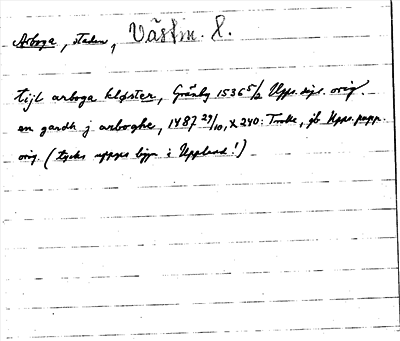 Arboga, staden, Västm. l.
tijl arboga kloster, Gränby 1536 5/2 Upps. dipl. orig.
en gardh j arboghe, 1487 29/10, X 240: Trolle, jb Upps. papp.
orig. (tycks uppges ligga i Uppland!)